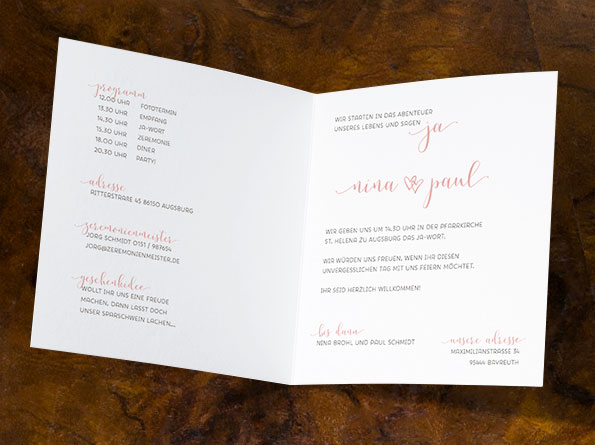 programm
12.00 UHR FOTOTERMIN
13.30 UHR EMPFANG
14.30 UHR JA-WORT
15.30 UHR ZEREMONIE
18.00 UHR DINER
20.30 UHR PARTY!
adresse
RITTERSTRAßE 45 86150 AUGSBURG
zeremonienmeister
JÖRG SCHMIDT 0151 / 987654
JORG@ZEREMONIENMEISTER.DE
geschenkidee
WOLLT IHR UNS EINE FREUDE
MACHEN, DANN LASST DOCH
UNSER SPARSCHWEIN LACHEN...
WIR STARTEN IN DAS ABENTEUER
UNSERES LEBENS UND SAGEN ja
nina paul
WIR GEBEN UNS UM 14.30 UHR IN DER PFARRKIRCHE
ST. HELENA ZU AUGSBURG DAS JA-WORT.
WIR WÜRDEN UNS FREUEN, WENN IHR DIESEN
UNVERGESSLICHEN TAG MIT UNS FEIERN MÖCHTET.
IHR SEID HERZLICH WILLKOMMEN!
bis dann
NINA BROHL UND PAUL SCHMIDT
unsere adresse
MAXIMILIANSTRASSE 34
95444 BAYREUTH